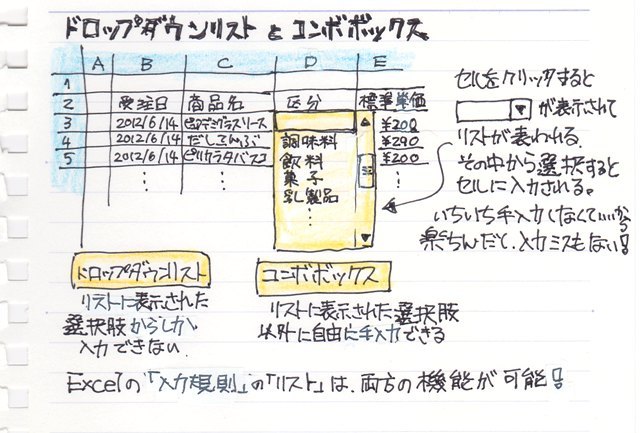 ドロップダウンリストとコンボボックス
A B C D E
1
2 受注日 商品名 区分 標準単価
3 2012/6/14 ¥200
4 2012/6/14 だしこんぶ ¥290
5 2012/6/14 ピリカラタバスコ ¥200
調味料
飲料
菓子
乳製品
セルをクリックすると
が表示されて
リストが表われる。
その中から選択すると
セルに入力される。
いちいち手入力しなくていいから
楽ちんだし、入力ミスもない!
ドロップダウンリスト
リストに表示された
選択肢からしか
入力できない.
コンボボックス
リストに表示された選択肢
以外に自由に手入力できる
Excelの「入力規則」の「リスト」は、両方の機能が可能!